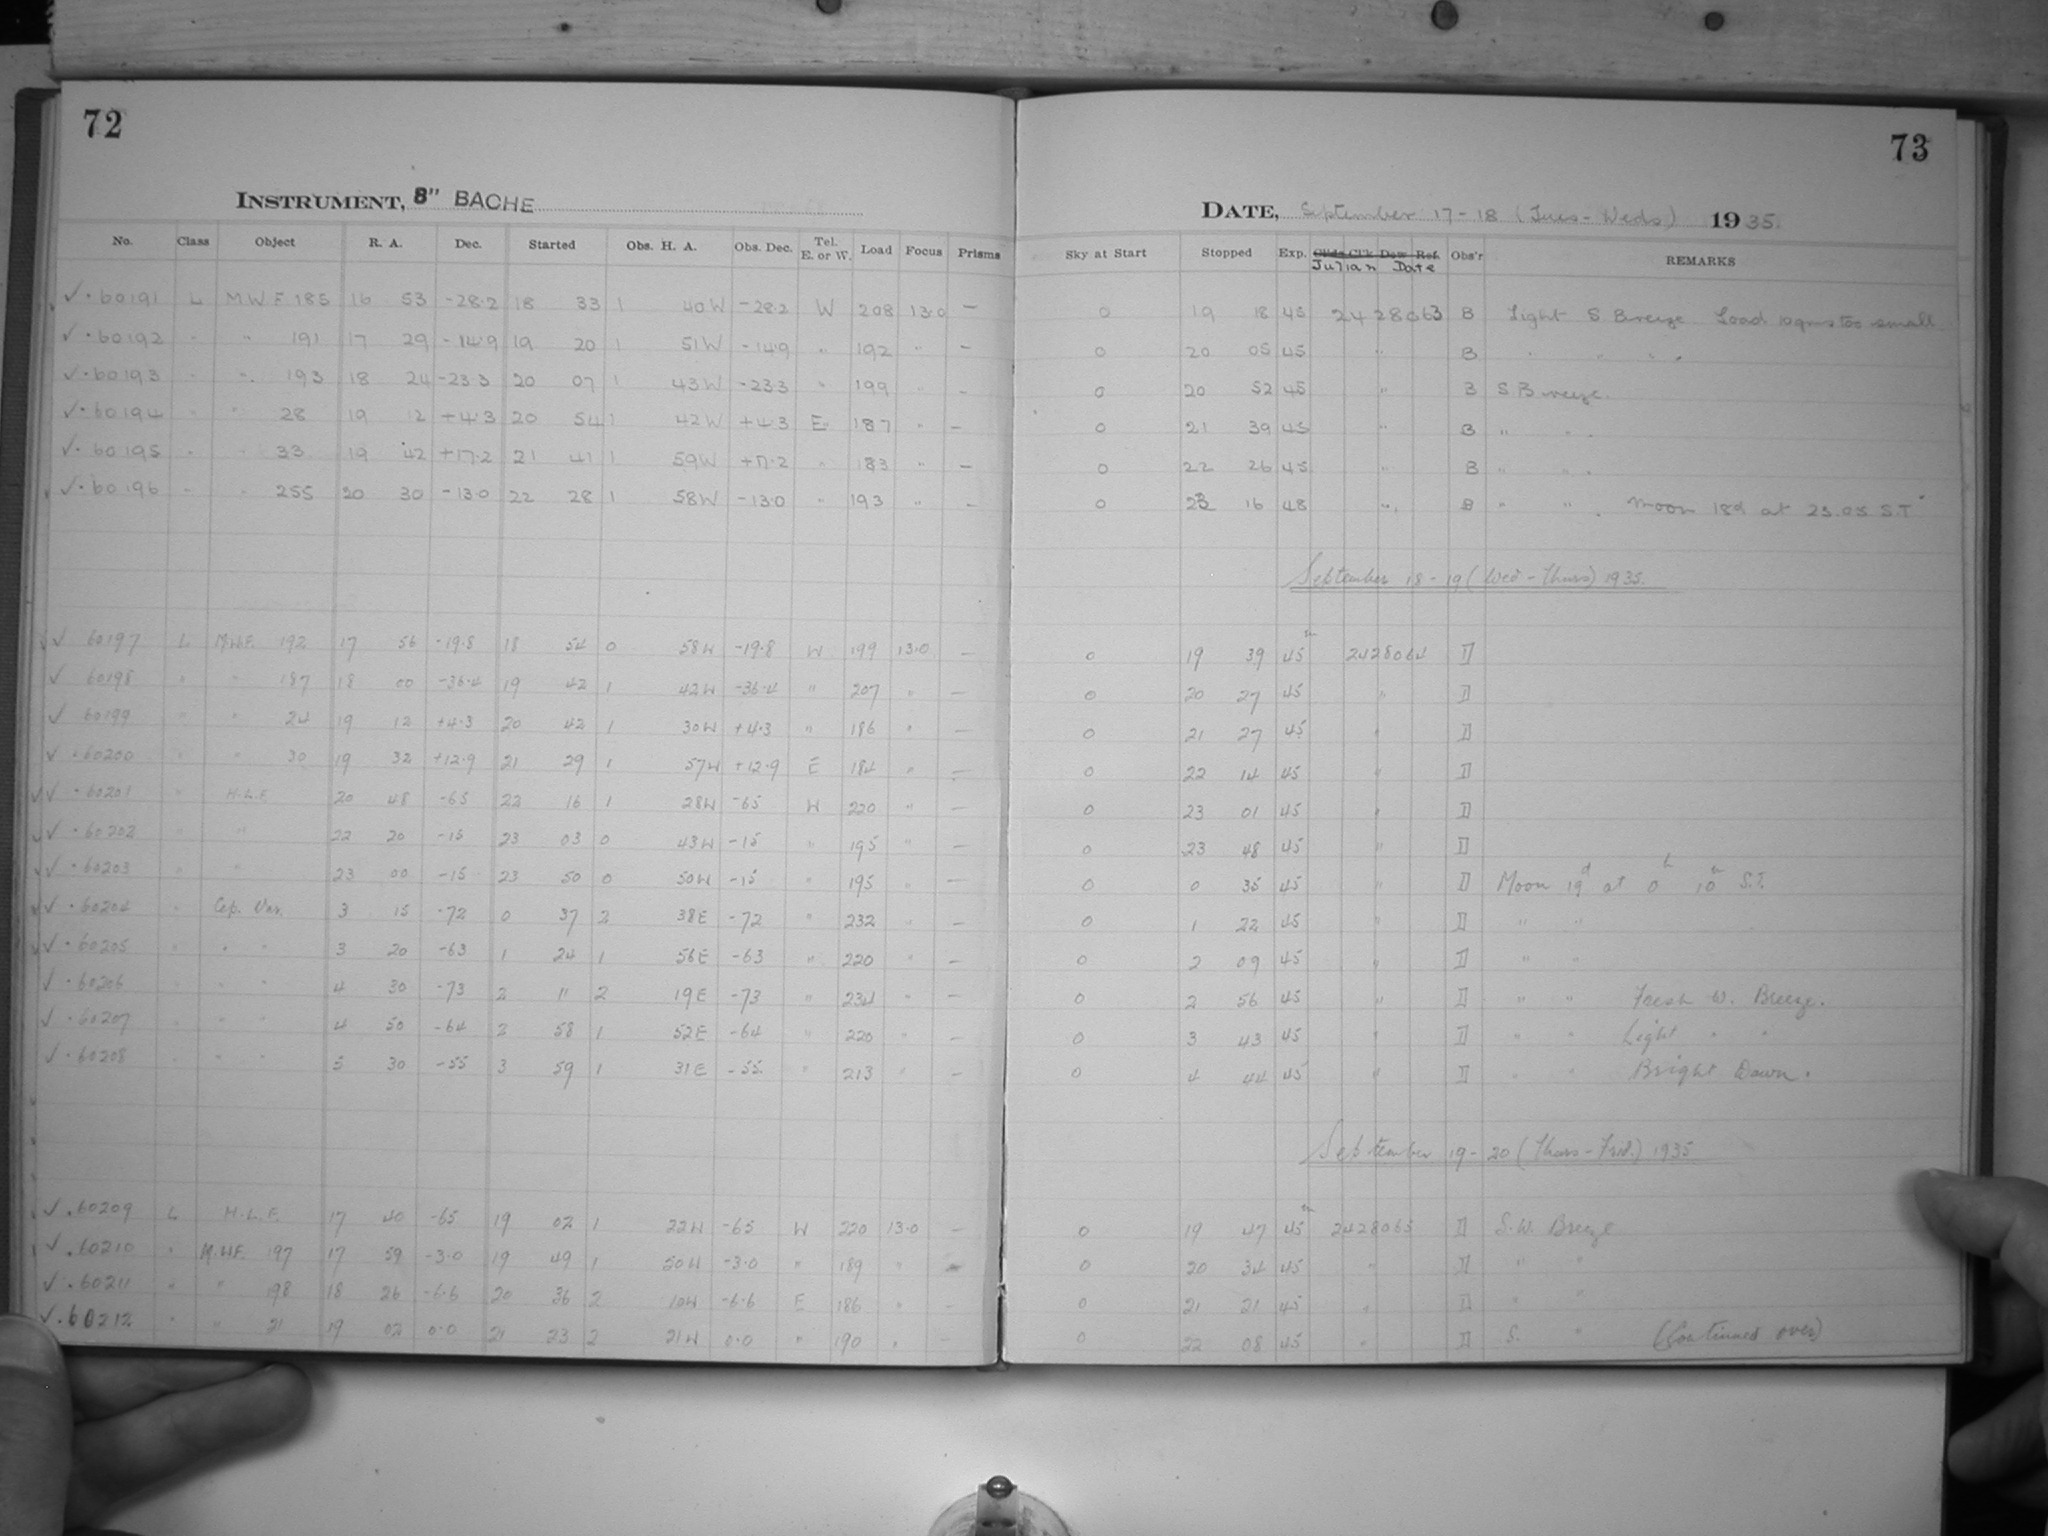 72
INSTRUMENT, 8" BACHE
No. Class Object R. A. Dec. Started Obs. H. A. Obs. Dec. Tel. E. or W. Load Focus Prisms
✓ · 60191 L M.W.F. 185 16 53 -28.2 18 33 1 40W -28.2 W 208 13.0 —
✓ · 60192 " " 191 17 29 -14.9 19 20 1 51W -14.9 " 192 " —
✓ · 60193 " " 193 18 24 -23.3 20 07 1 43W -23.3 " 199 " —
✓ · 60194 " " 28 19 12 +4.3 20 54 1 42W +4.3 E 187 " —
✓ · 60195 " " 33 19 42 +17.2 21 41 1 59W +17.2 " 183 " —
✓ · 60196 " " 255 20 30 -13.0 22 28 1 58W -13.0 " 193 " —
✓ 60197 L M.W.F. 192 17 56 -19.8 18 54 0 58W -19.8 W 199 13.0 —
✓ 60198 " " 187 18 00 -36.4 19 42 1 42W -36.4 " 207 " —
✓ 60199 " " 24 19 12 +4.3 20 42 1 30W +4.3 " 186 " —
✓ · 60200 " " 30 19 32 +12.9 21 29 1 57W +12.9 E 184 " —
✓ · 60201 " H.L.F. 20 48 -65 22 16 1 28W -65 W 220 " —
✓ · 60202 " " 22 20 -15 23 03 0 43W -15 " 195 " —
✓ · 60203 " " 23 00 -15 23 50 0 50W -15 " 195 " —
✓ · 60204 " Cep. Var. 3 15 -72 0 37 2 38E -72 " 232 " —
✓ · 60205 " " " 3 20 -63 1 24 1 56E -63 " 220 " —
✓ · 60206 " " " 4 30 -73 2 11 2 19E -73 " 234 " —
✓ · 60207 " " " 4 50 -64 2 58 1 52E -64 " 220 " —
✓ · 60208 " " " 5 30 -55 3 59 1 31E -55 " 213 " —
✓ · 60209 L H.L.F. 17 40 -65 19 02 1 22W -65 W 220 13.0 —
✓ · 60210 " M.W.F. 197 17 59 -3.0 19 49 1 50W -3.0 " 189 " —
✓ · 60211 " " 198 18 26 -6.6 20 36 2 10W -6.6 E 186 " —
✓ · 60212 " " 21 19 02 0.0 21 23 2 21W 0.0 " 190 " —
73
DATE, September 17-18 (Tues-Weds) 1935.
Sky at Start Stopped Exp. Julian Date Obs'r REMARKS
0 19 18 45 2428063 B Light S Breeze Load 10gms too small
0 20 05 45 " B " " " "
0 20 52 45 " B S Breeze.
0 21 39 45 " B " "
0 22 26 45 " B " "
0 23 16 48 " B " " . Moon 18d at 23.05 S.T
September 18-19 (Wed-Thurs) 1935.
0 19 39 45m 2428064 D
0 20 27 45 " D
0 21 27 45 " D
0 22 14 45 " D
0 23 01 45 " D
0 23 48 45 " D
0 0 35 45 " D Moon 19d at 0h 10m S.T.
0 1 22 45 " D " "
0 2 09 45 " D " "
0 2 56 45 " D " " Fresh W. Breeze.
0 3 43 45 " D " " Light " "
0 4 44 45 " D " " Bright Dawn.
September 19-20 (Thurs-Frid.) 1935
0 19 47 45m 2428065 D S.W. Breeze
0 20 34 45 " D " "
0 21 21 45 " D " "
0 22 08 45 " D S. " (Continued over)